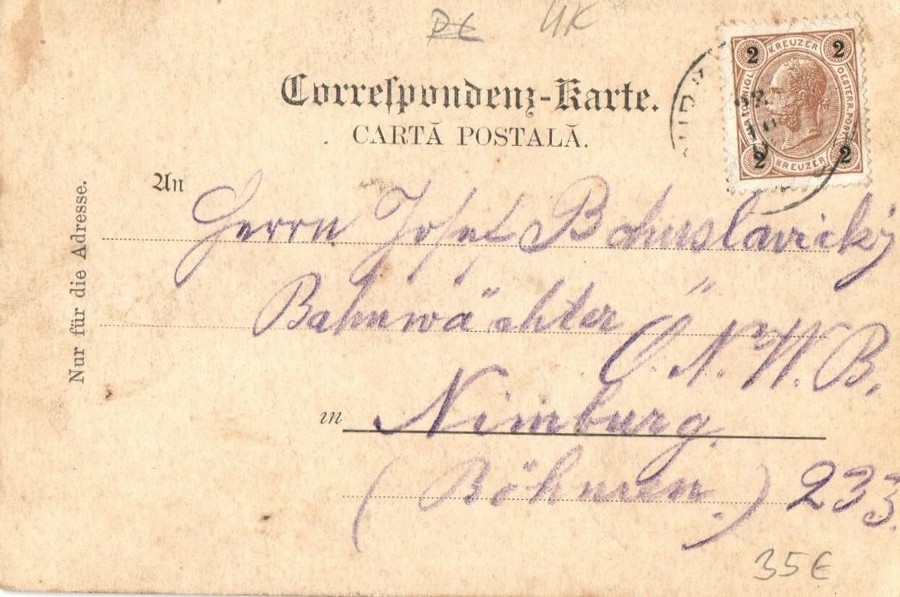 UK
Correspondenz-Karte.
CARTĂ POSTALĂ.
2 KREUZER 2
2 KREUZER 2
An
Herrn Josef Bohuslavický
Bahnwächter Ö. N. W. B.
in Nimburg
(Böhmen.) 233
Nur für die Adresse.
35€